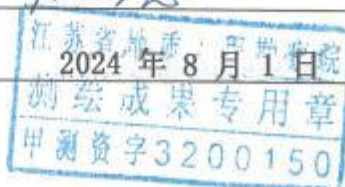 江苏省地质勘察院
2024 年 8 月 1 日
测绘成果专用章
甲测资字3200150